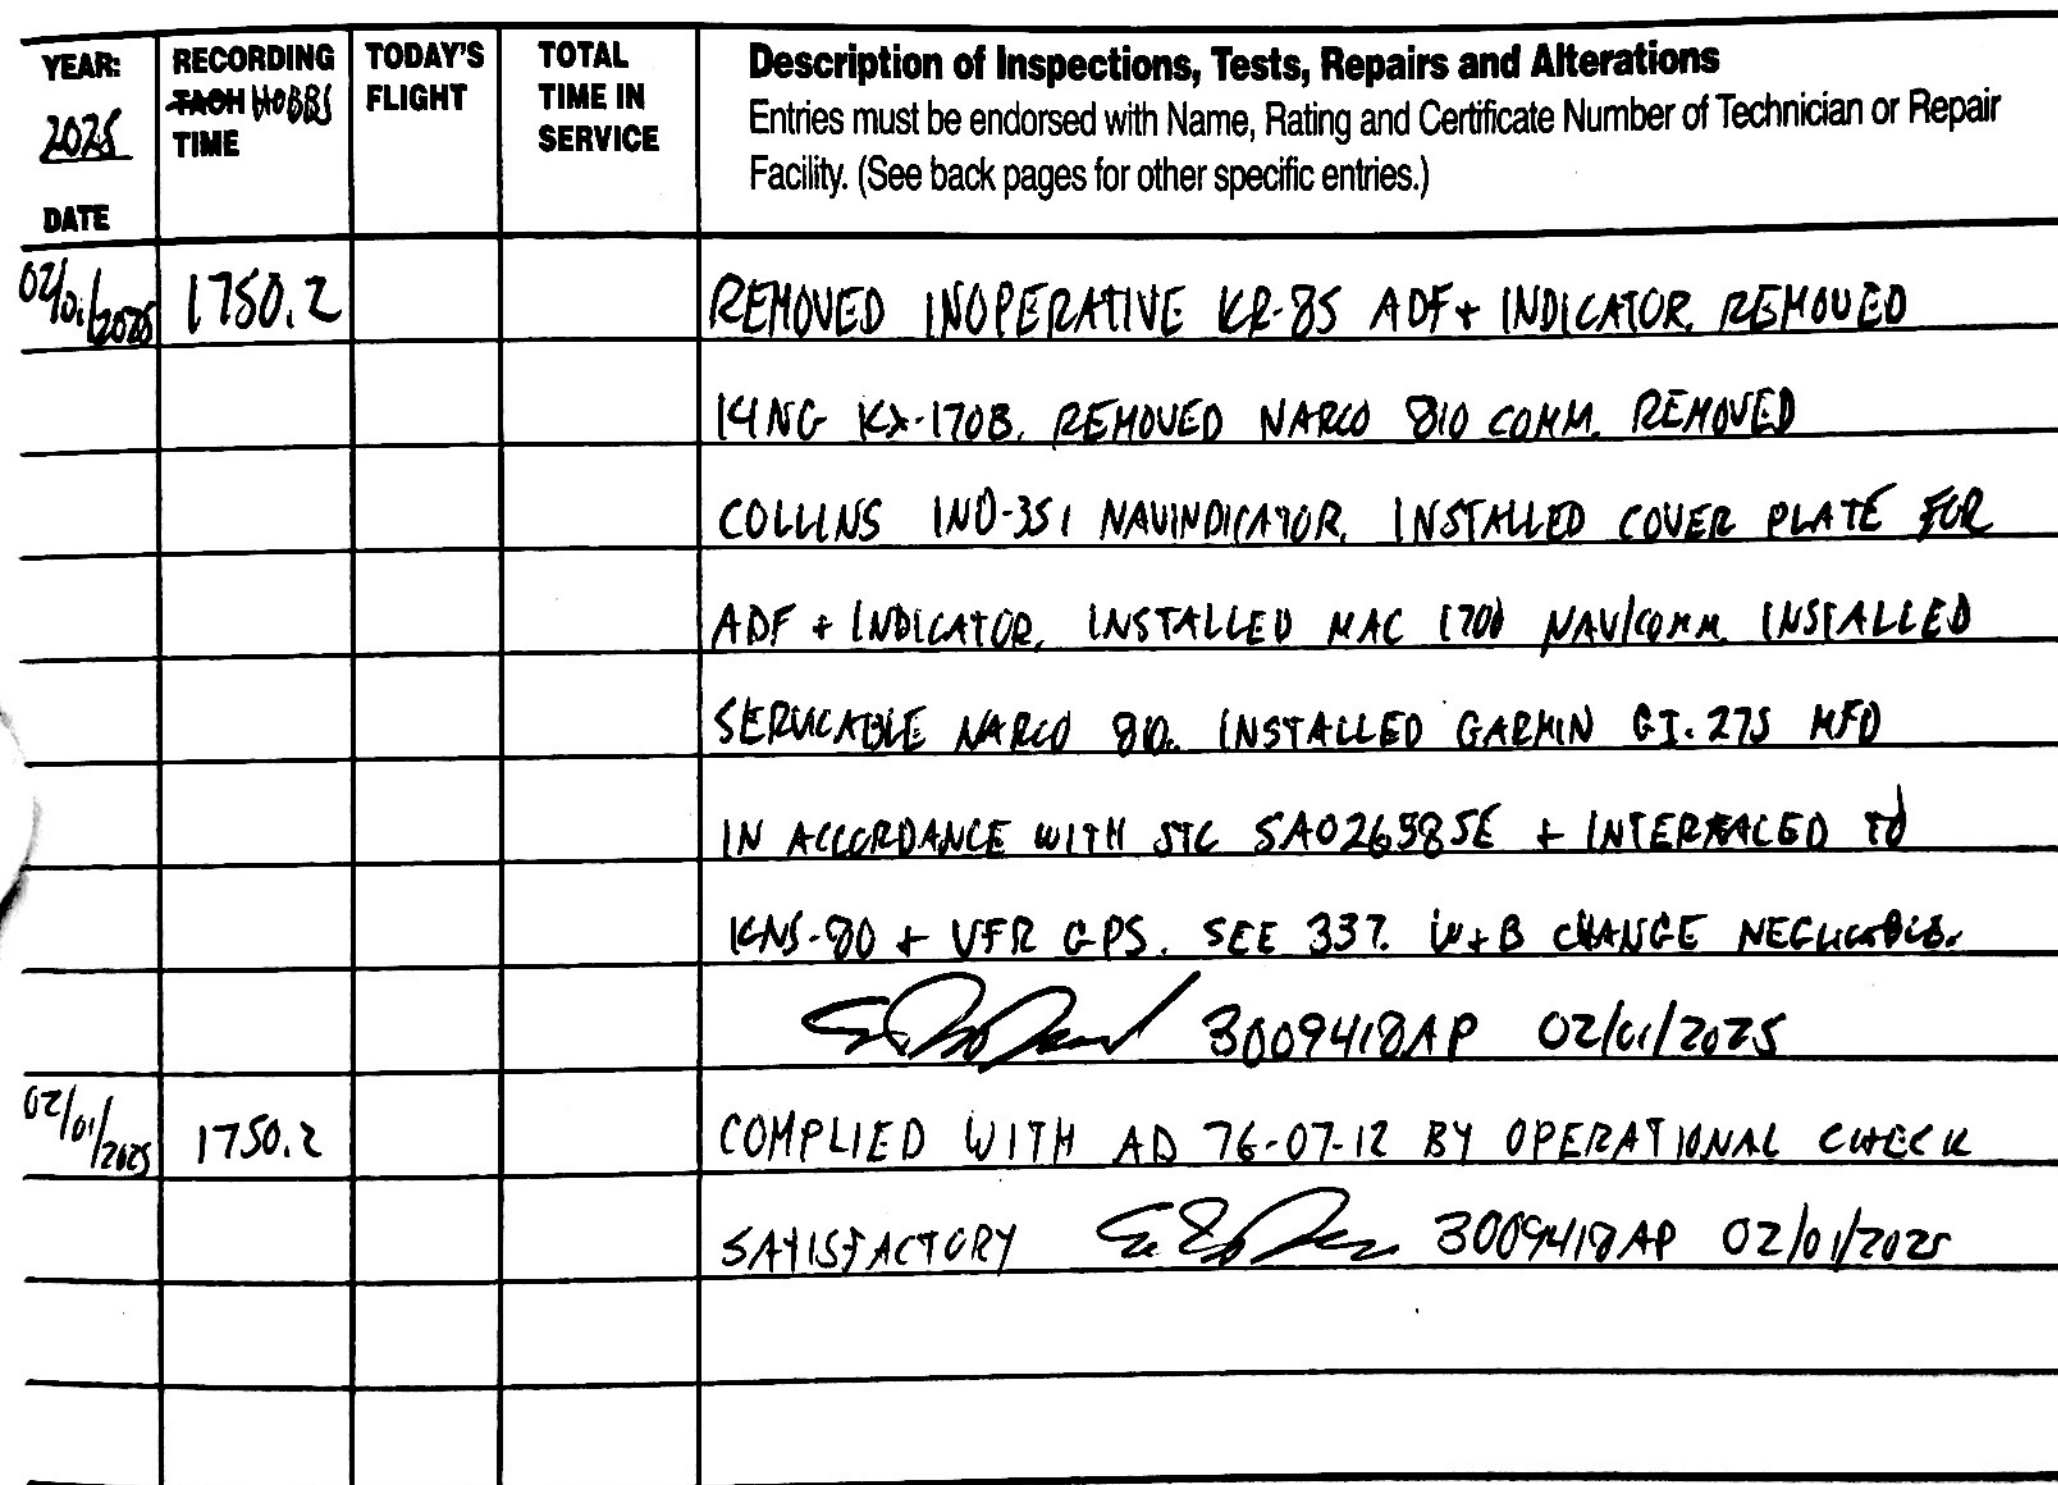 YEAR: RECORDING TODAY'S TOTAL Description of Inspections, Tests, Repairs and Alterations
TACH HOBBS FLIGHT TIME IN Entries must be endorsed with Name, Rating and Certificate Number of Technician or Repair
2025 TIME SERVICE Facility. (See back pages for other specific entries.)
DATE
02/01/2025 1750.2 REMOVED INOPERATIVE KR-85 ADF + INDICATOR. REMOVED
KING KX-170B. REMOVED NARCO 810 COMM. REMOVED
COLLINS IND-351 NAVINDICATOR. INSTALLED COVER PLATE FOR
ADF + INDICATOR. INSTALLED MAC 1700 NAV/COMM. INSTALLED
SERVICABLE NARCO 810. INSTALLED GARMIN GI-275 MFD
IN ACCORDANCE WITH STC SA02658SE + INTERFACED TO
KNS-80 + VFR GPS. SEE 337. W+B CHANGE NEGLICABLE.
3009418AP 02/01/2025
02/01/2025 1750.2 COMPLIED WITH AD 76-07-12 BY OPERATIONAL CHECK
SATISFACTORY 3009418AP 02/01/2025